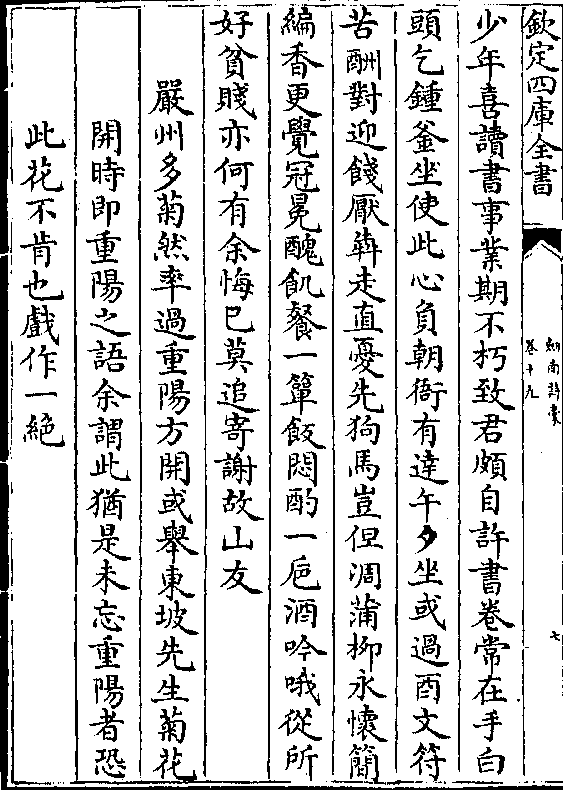 欽定四庫全書
劍南詩稾
卷十九
七
少年喜讀書事業期不朽致君頗自許書卷常在手白
頭乞鍾釜坐使此心負朝衙有達午夕坐或過酉文符
苦酬對迎餞厭犇走直憂先狗馬豈但凋蒲柳永懷簡
編香更覺冠冕醜飢餐一簞飯悶酌一巵酒吟哦從所
好貧賤亦何有余悔已莫追寄謝故山友
嚴州多菊然率過重陽方開或舉東坡先生菊花
開時即重陽之語余謂此猶是未忘重陽者恐
此花不肯也戲作一絶